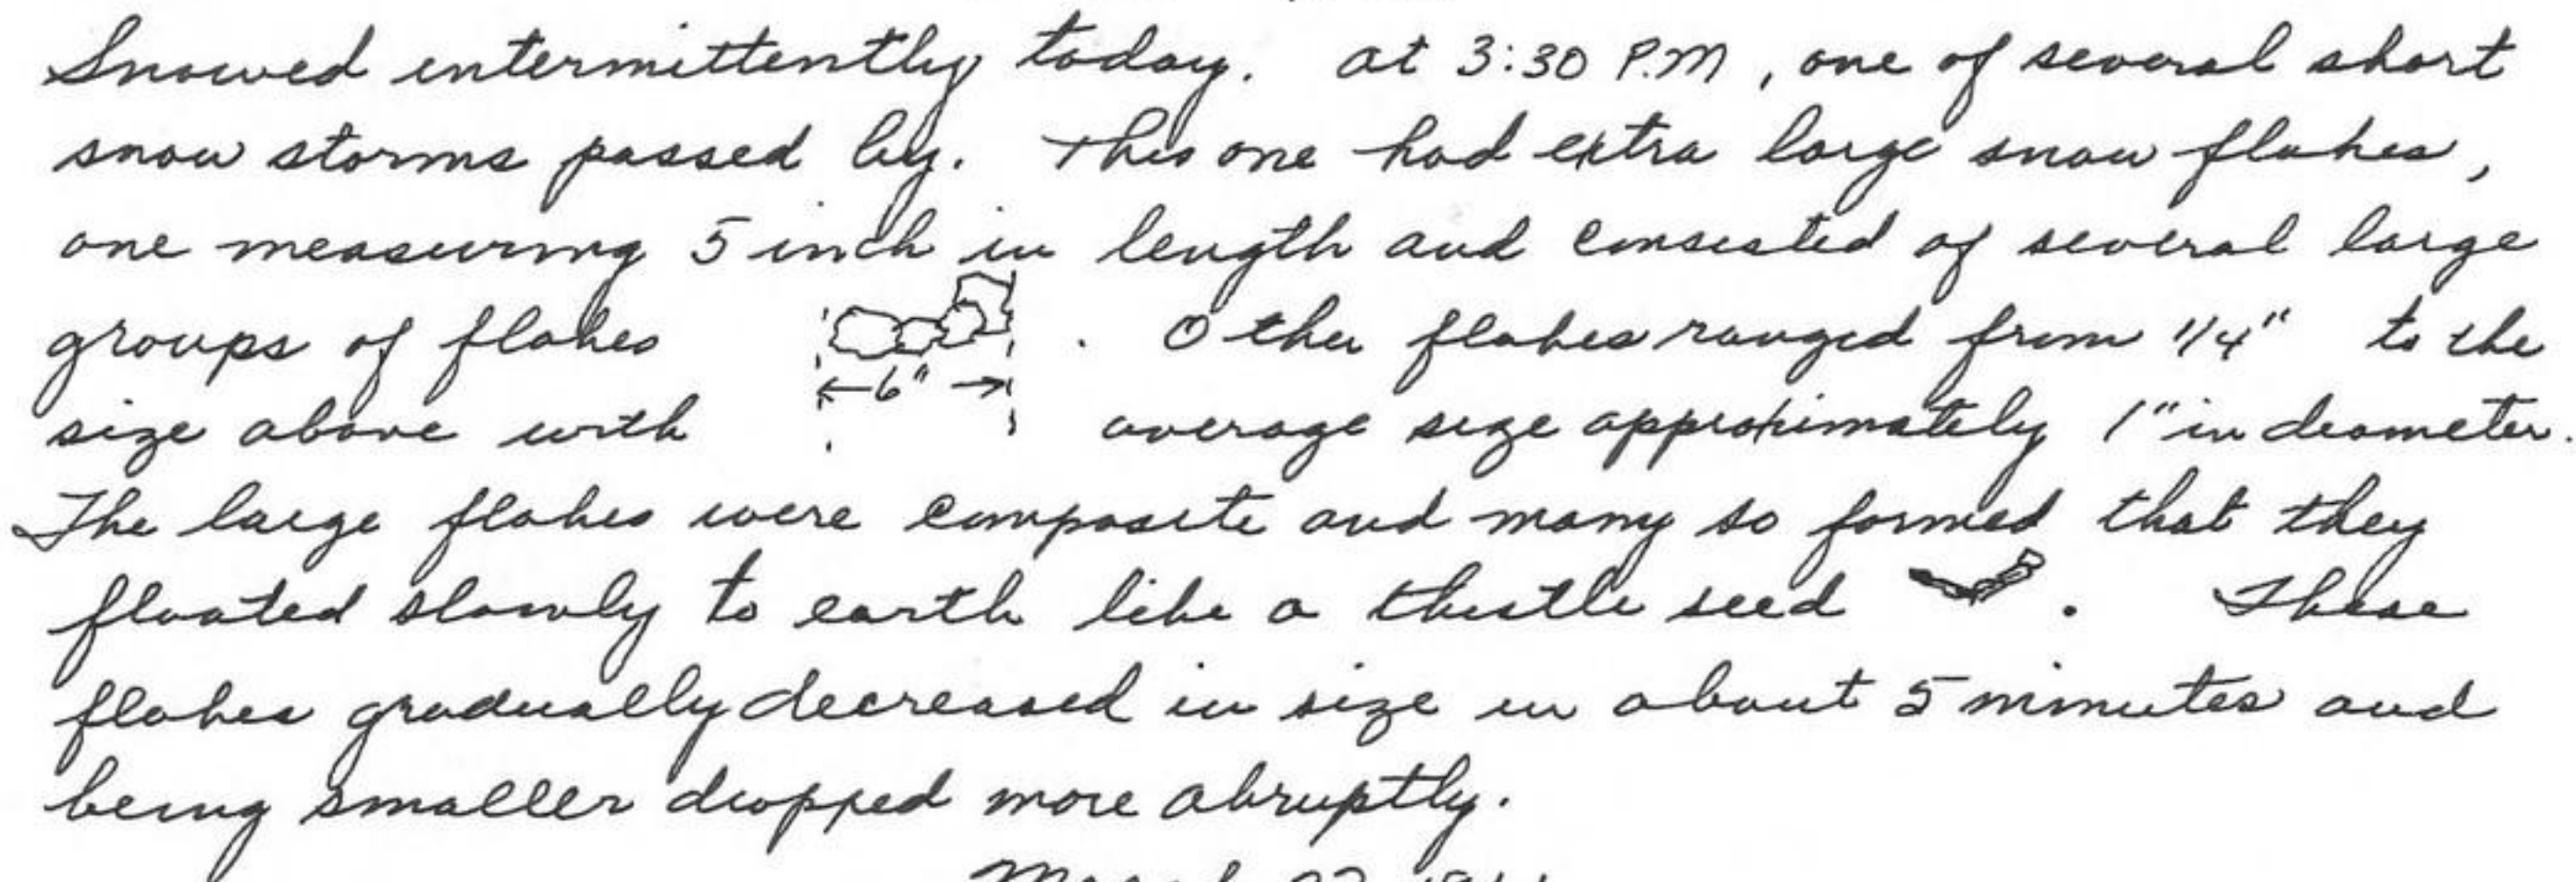 Snowed intermittently today. at 3:30 P.M, one of several short
snow storms passed by. This one had extra large snow flakes,
one measuring 5 inch in length and consisted of several large
groups of flakes . Other flakes ranged from 1/4" to the
←6"→
size above with average size approximately 1" in diameter.
The large flakes were composite and many so formed that they
floated slowly to earth like a thistle seed . These
flakes gradually decreased in size in about 5 minutes and
being smaller dropped more abruptly.
March